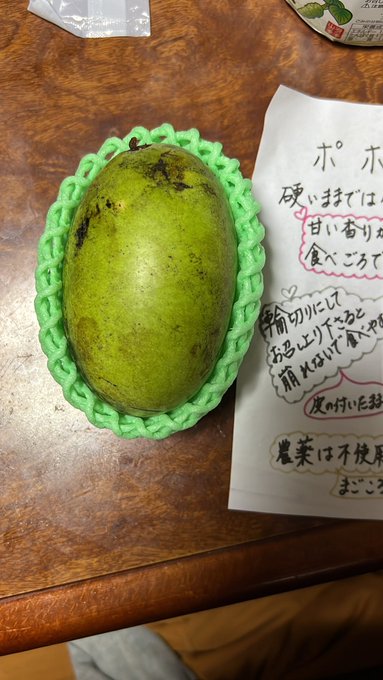 ポ ホ
硬いままでは
甘い香りが
食べごろで
輪切りにして
お召し上り下さると
崩れないで食べや
皮の付いたまま
農薬は不使用
まごころ